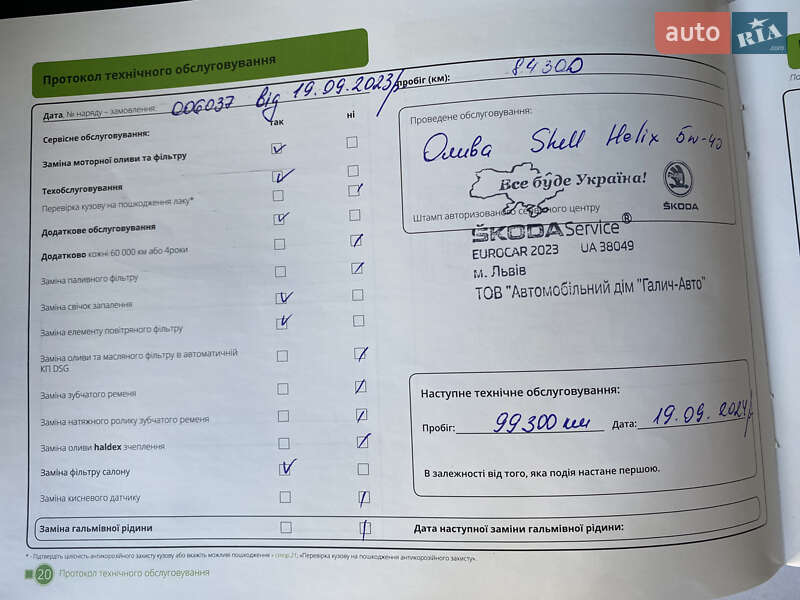 auto RIA .com
Протокол технічного обслуговування
Дата, № наряду – замовлення: 006037 від 19.09.2023р
пробіг (км): 84300
так ні
Сервісне обслуговування:
Заміна моторної оливи та фільтру
Техобслуговування
Перевірка кузову на пошкодження лаку*
Додаткове обслуговування
Додатково кожні 60 000 км або 4роки
Заміна паливного фільтру
Заміна свічок запалення
Заміна елементу повітряного фільтру
Заміна оливи та масляного фільтру в автоматичній
КП DSG
Заміна зубчатого ременя
Заміна натяжного ролику зубчатого ременя
Заміна оливи haldex зчеплення
Заміна фільтру салону
Заміна кисневого датчику
Заміна гальмівної рідини
Проведене обслуговування:
Олива Shell Helix 5w-40
Все буде Україна!
ŠKODA
Штамп авторизованого сервісного центру
ŠKODA Service®
EUROCAR 2023 UA 38049
м. Львів
ТОВ "Автомобільний дім "Галич-Авто"
Наступне технічне обслуговування:
Пробіг: 99300 км Дата: 19.09.2024р
В залежності від того, яка подія настане першою.
Дата наступної заміни гальмівної рідини:
* - Підтвердіть цілісність антикорозійного захисту кузову або вкажіть можливі пошкодження » стор.21, «Перевірка кузову на пошкодження антикорозійного захисту».
20 Протокол технічного обслуговування